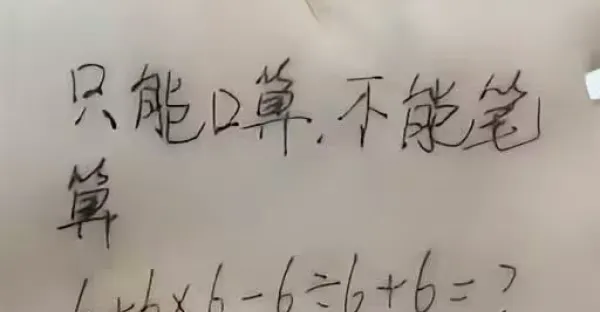 只能口算,不能笔
算
6+6×6-6÷6+6=?